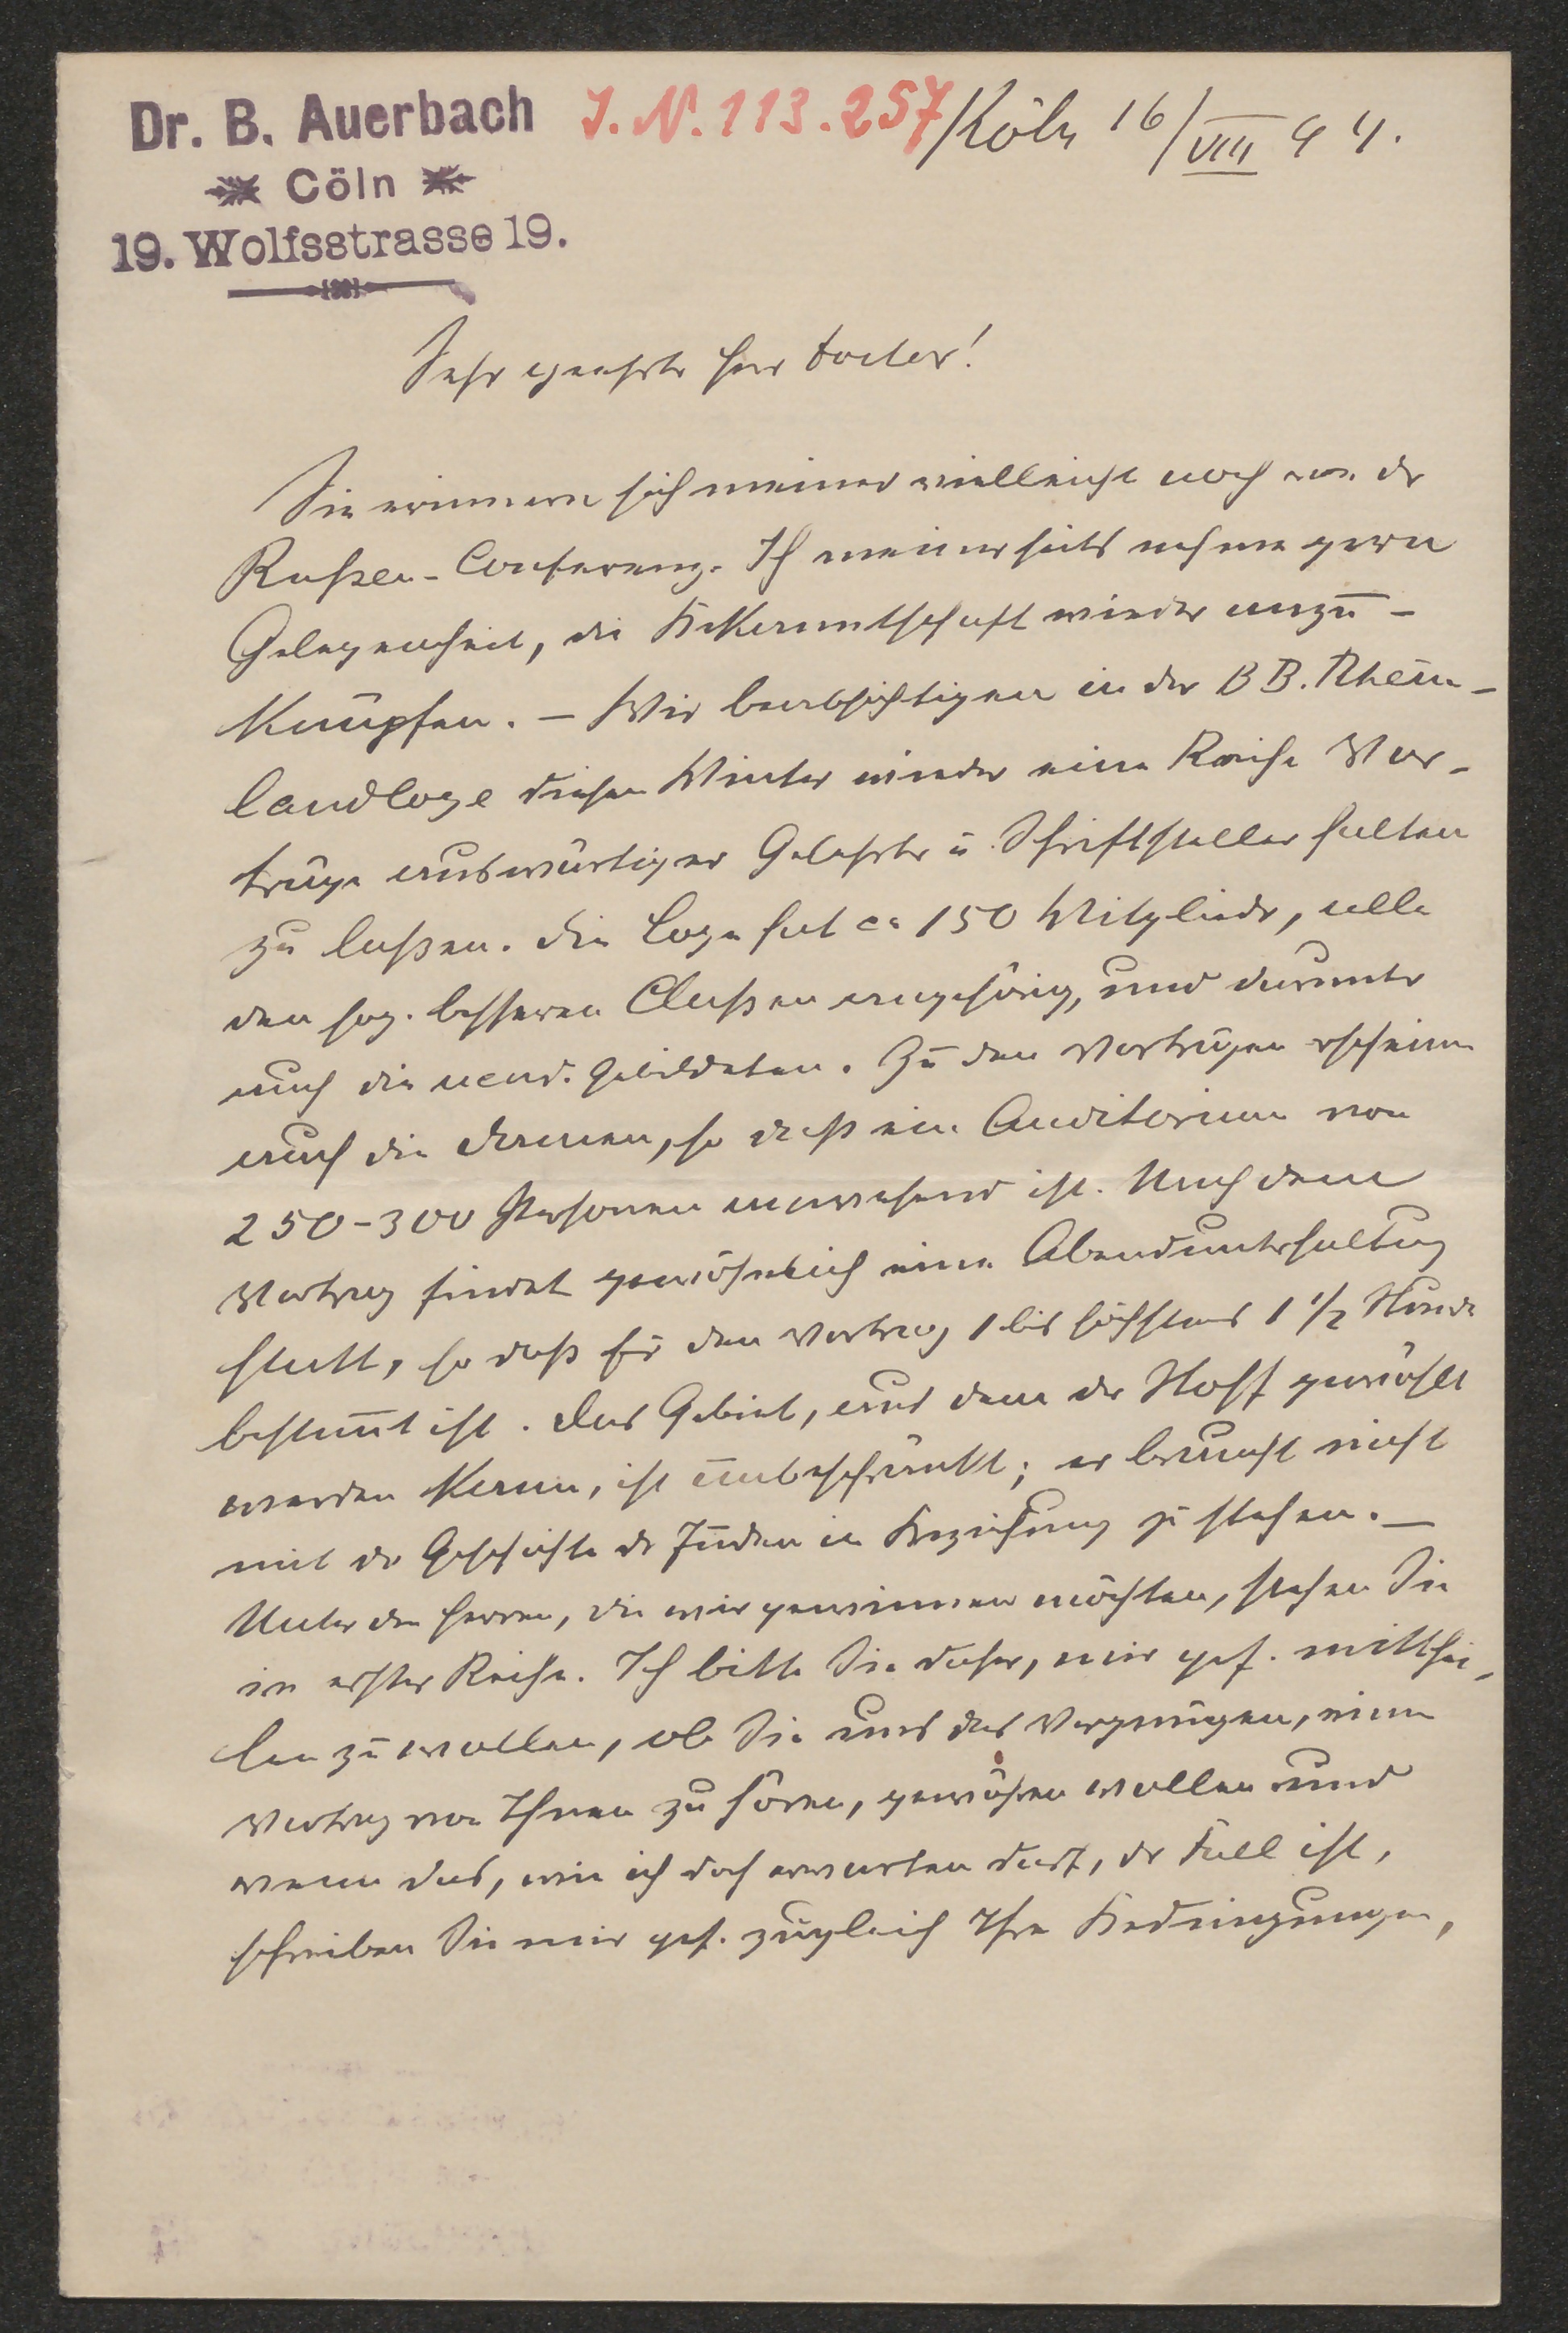 Dr. B. Auerbach
Cöln
19. Wolfsstrasse 19.
J. N. 113.257
Köln 16/VIII 94.
Sehr geehrter Herr Doctor!
Sie erinnern sich meiner vielleicht noch von der
Russen-Conferenz. Ich meinerseits nehme gern
Gelegenheit, die Bekanntschaft wieder anzu-
knüpfen. – Wir beabsichtigen in der B B. Rhein-
landloge diesen Winter wieder eine Reihe Vor-
träge auswärtiger Gelehrter u. Schriftsteller halten
zu laßen. Die Loge hat ca 150 Mitglieder, alle
den sog. besseren Claßen angehörig, und darunter
auch die acad. Gebildeten. Zu den Vorträgen erscheinen
auch die Damen, so daß ein Auditorium von
250-300 Personen anwesend ist. Nach dem
Vortrag findet gewöhnlich eine Abendunterhaltung
statt, so daß für den Vortrag 1 bis höchstens 1 1/2 Stunde
bestimt ist. Das Gebiet, aus dem der Stoff gewählt
werden kann, ist unbeschränkt; er braucht nicht
mit der Geschichte der Juden in Beziehung zu stehen. –
Unter den Herren, die wir gewinnen möchten, stehen Sie
in erster Reihe. Ich bitte Sie daher, mir gef. mitthei-
len zu wollen, ob Sie uns das Vergnügen, einen
Vortrag von Ihnen zu hören, gewähren wollen und
wenn das, wie ich doch erwarten darf, der Fall ist,
schreiben Sie mir gef. zugleich Ihre Bedingungen,